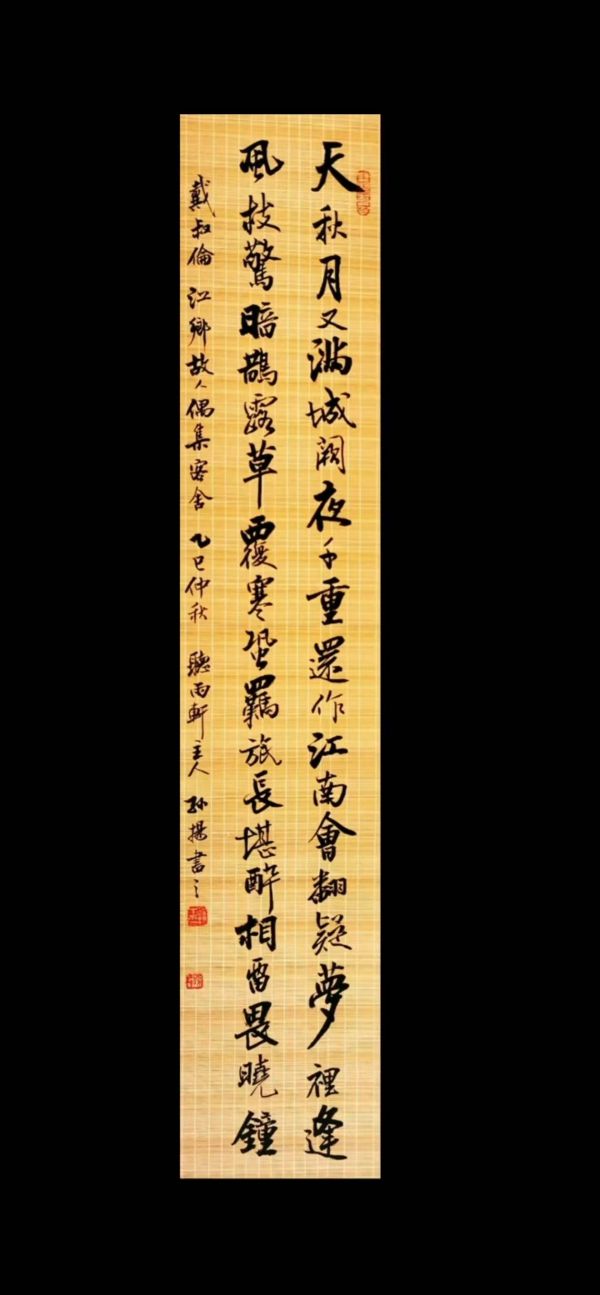 天秋月又滿城闕夜千重還作江南會翻疑夢裡逢
風枝驚暗鵲露草覆寒蛩羈旅長堪醉相留畏曉鐘
戴叔倫 江鄉故人偶集客舍 乙巳仲秋 聽雨軒主人 孫揚書之